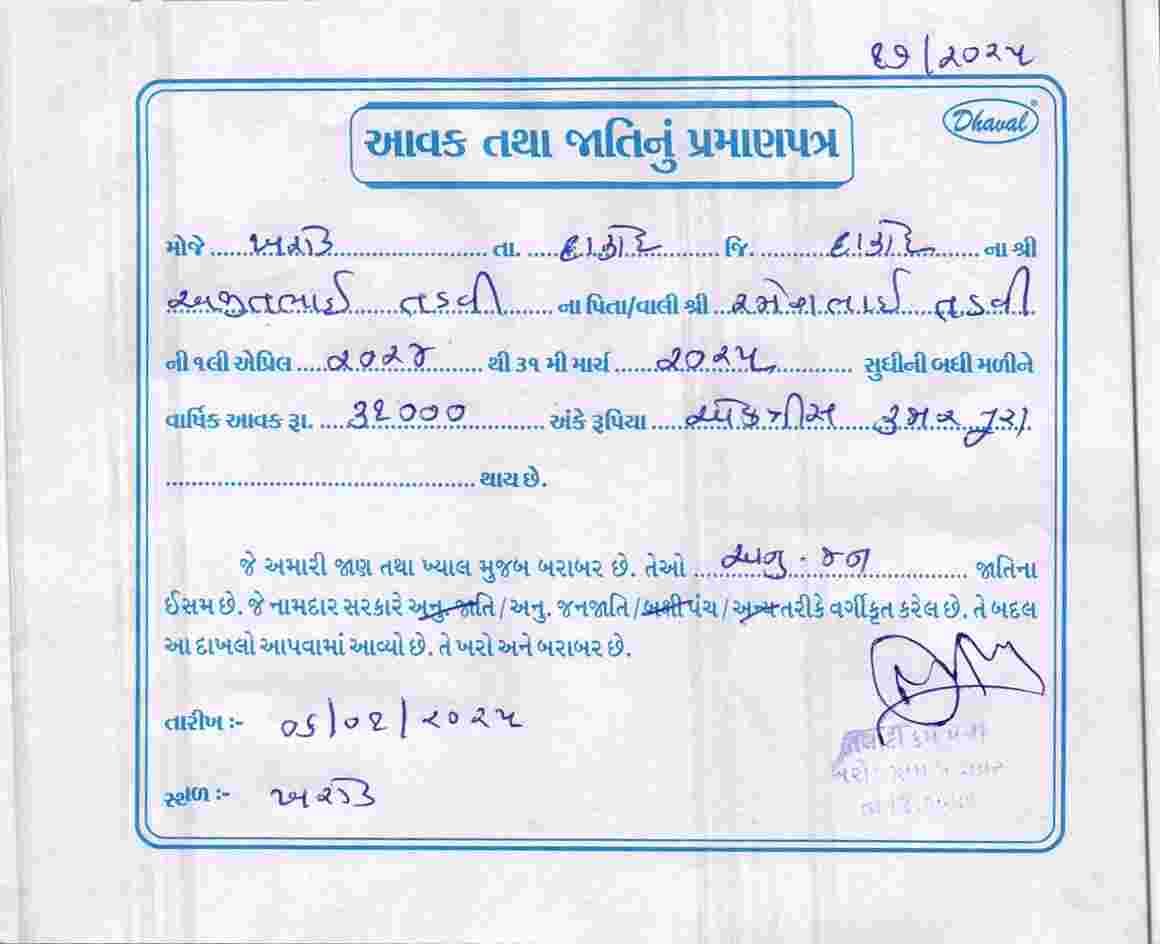 ૧૭/૨૦૨૫
Dhaval
આવક તથા જાતિનું પ્રમાણપત્ર
મોજે ખરોડ તા. દાહોદ જિ. દાહોદ ના શ્રી
અજીતભાઈ તડવી ના પિતા/વાલી શ્રી રમેશભાઈ તડવી
ની ૧લી એપ્રિલ ૨૦૨૪ થી ૩૧ મી માર્ચ ૨૦૨૫ સુધીની બધી મળીને
વાર્ષિક આવક રૂા. ૩૧૦૦૦ અંકે રૂપિયા એકત્રીસ હજાર પુરા
થાય છે.
જે અમારી જાણ તથા ખ્યાલ મુજબ બરાબર છે. તેઓ અનુ-જન જાતિના
ઈસમ છે. જે નામદાર સરકારે અનુ. જાતિ/અનુ. જનજાતિ/બક્ષીપંચ/અન્ય તરીકે વર્ગીકૃત કરેલ છે. તે બદલ
આ દાખલો આપવામાં આવ્યો છે. તે ખરો અને બરાબર છે.
તારીખ :- ૦૬/૦૧/૨૦૨૫
તલાટી કમ મંત્રી
સ્થળ :- ખરોડ